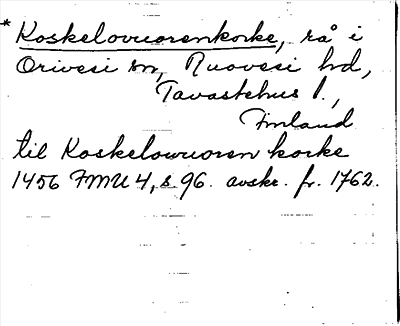 * Koskelovuorenkorke, rå i
Orivesi sn, Ruovesi hd,
Tavastehus l.,
Finland
til Koskelowuoren korke
1456 FMU 4, s 96. avskr. fr. 1762.